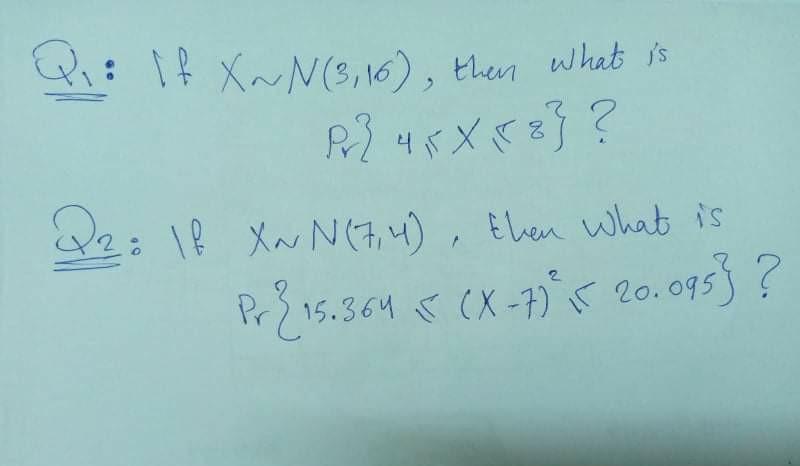 Q1: If X~N(3,16), then what is
Pr{ 4 ≤ X ≤ 8} ?
Q2: If X~N(7,4), then what is
Pr{15.364 ≤ (X-7)² ≤ 20.095} ?